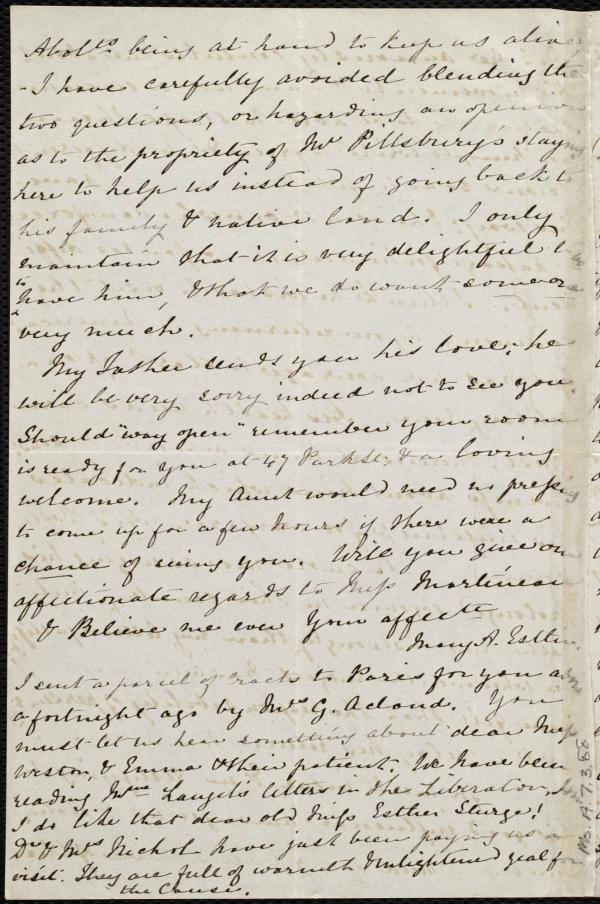 Abolts. being at hand to keep us alive
- I have carefully avoided blending the
two questions, or hazarding an opinion
as to the propriety of Mr Pillsbury's staying
here to help us instead of going back to
his family & native land. I only
maintain that it is very delightful
to have him, & that we do want someone
very much.
My Father sends you his love; he
will be very sorry indeed not to see you.
Should "way open" remember your room
is ready for you at 47 Park St, & a loving
welcome. My Aunt would need no pressing
to come up for a few hours if there were a
chance of seeing you. Will you give our
affectionate regards to Miss Martineau
& Believe me ever Your affecte
Mary A. Estlin.
I sent a parcel of tracts to Paris for you
a fortnight ago by Mrs G. Acland. You
must let us hear something about dear Miss
Weston, & Emma & their patient. We have been
reading Mme Laugel's letters in the Liberator,
I do like that dear old Miss Esther Sturge!
Dr & Mrs Nichol have just been paying us a
visit. They are full of warmth & enlightened zeal for
the Cause.
Ms. A. 7. 3. 88